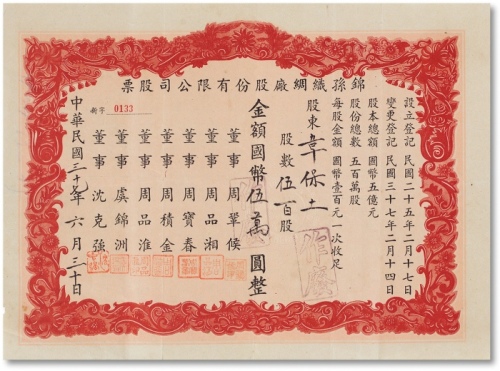 錦孫織綢廠股份有限公司股票
設立登記 民國二十五年二月十七日
變更登記 民國三十七年二月十四日
股本總額 國幣五億元
股份總數 五百萬股
每股金額 國幣壹百元 一次收足
股東 韋保土
股數 伍百股
金額國幣伍萬圓整
董事 周肇候
董事 周品湘
董事 周寶春
董事 周積金
董事 周品淮
董事 虞錦洲
董事 沈克強
新字 0133
中華民國三十七年六月三十日